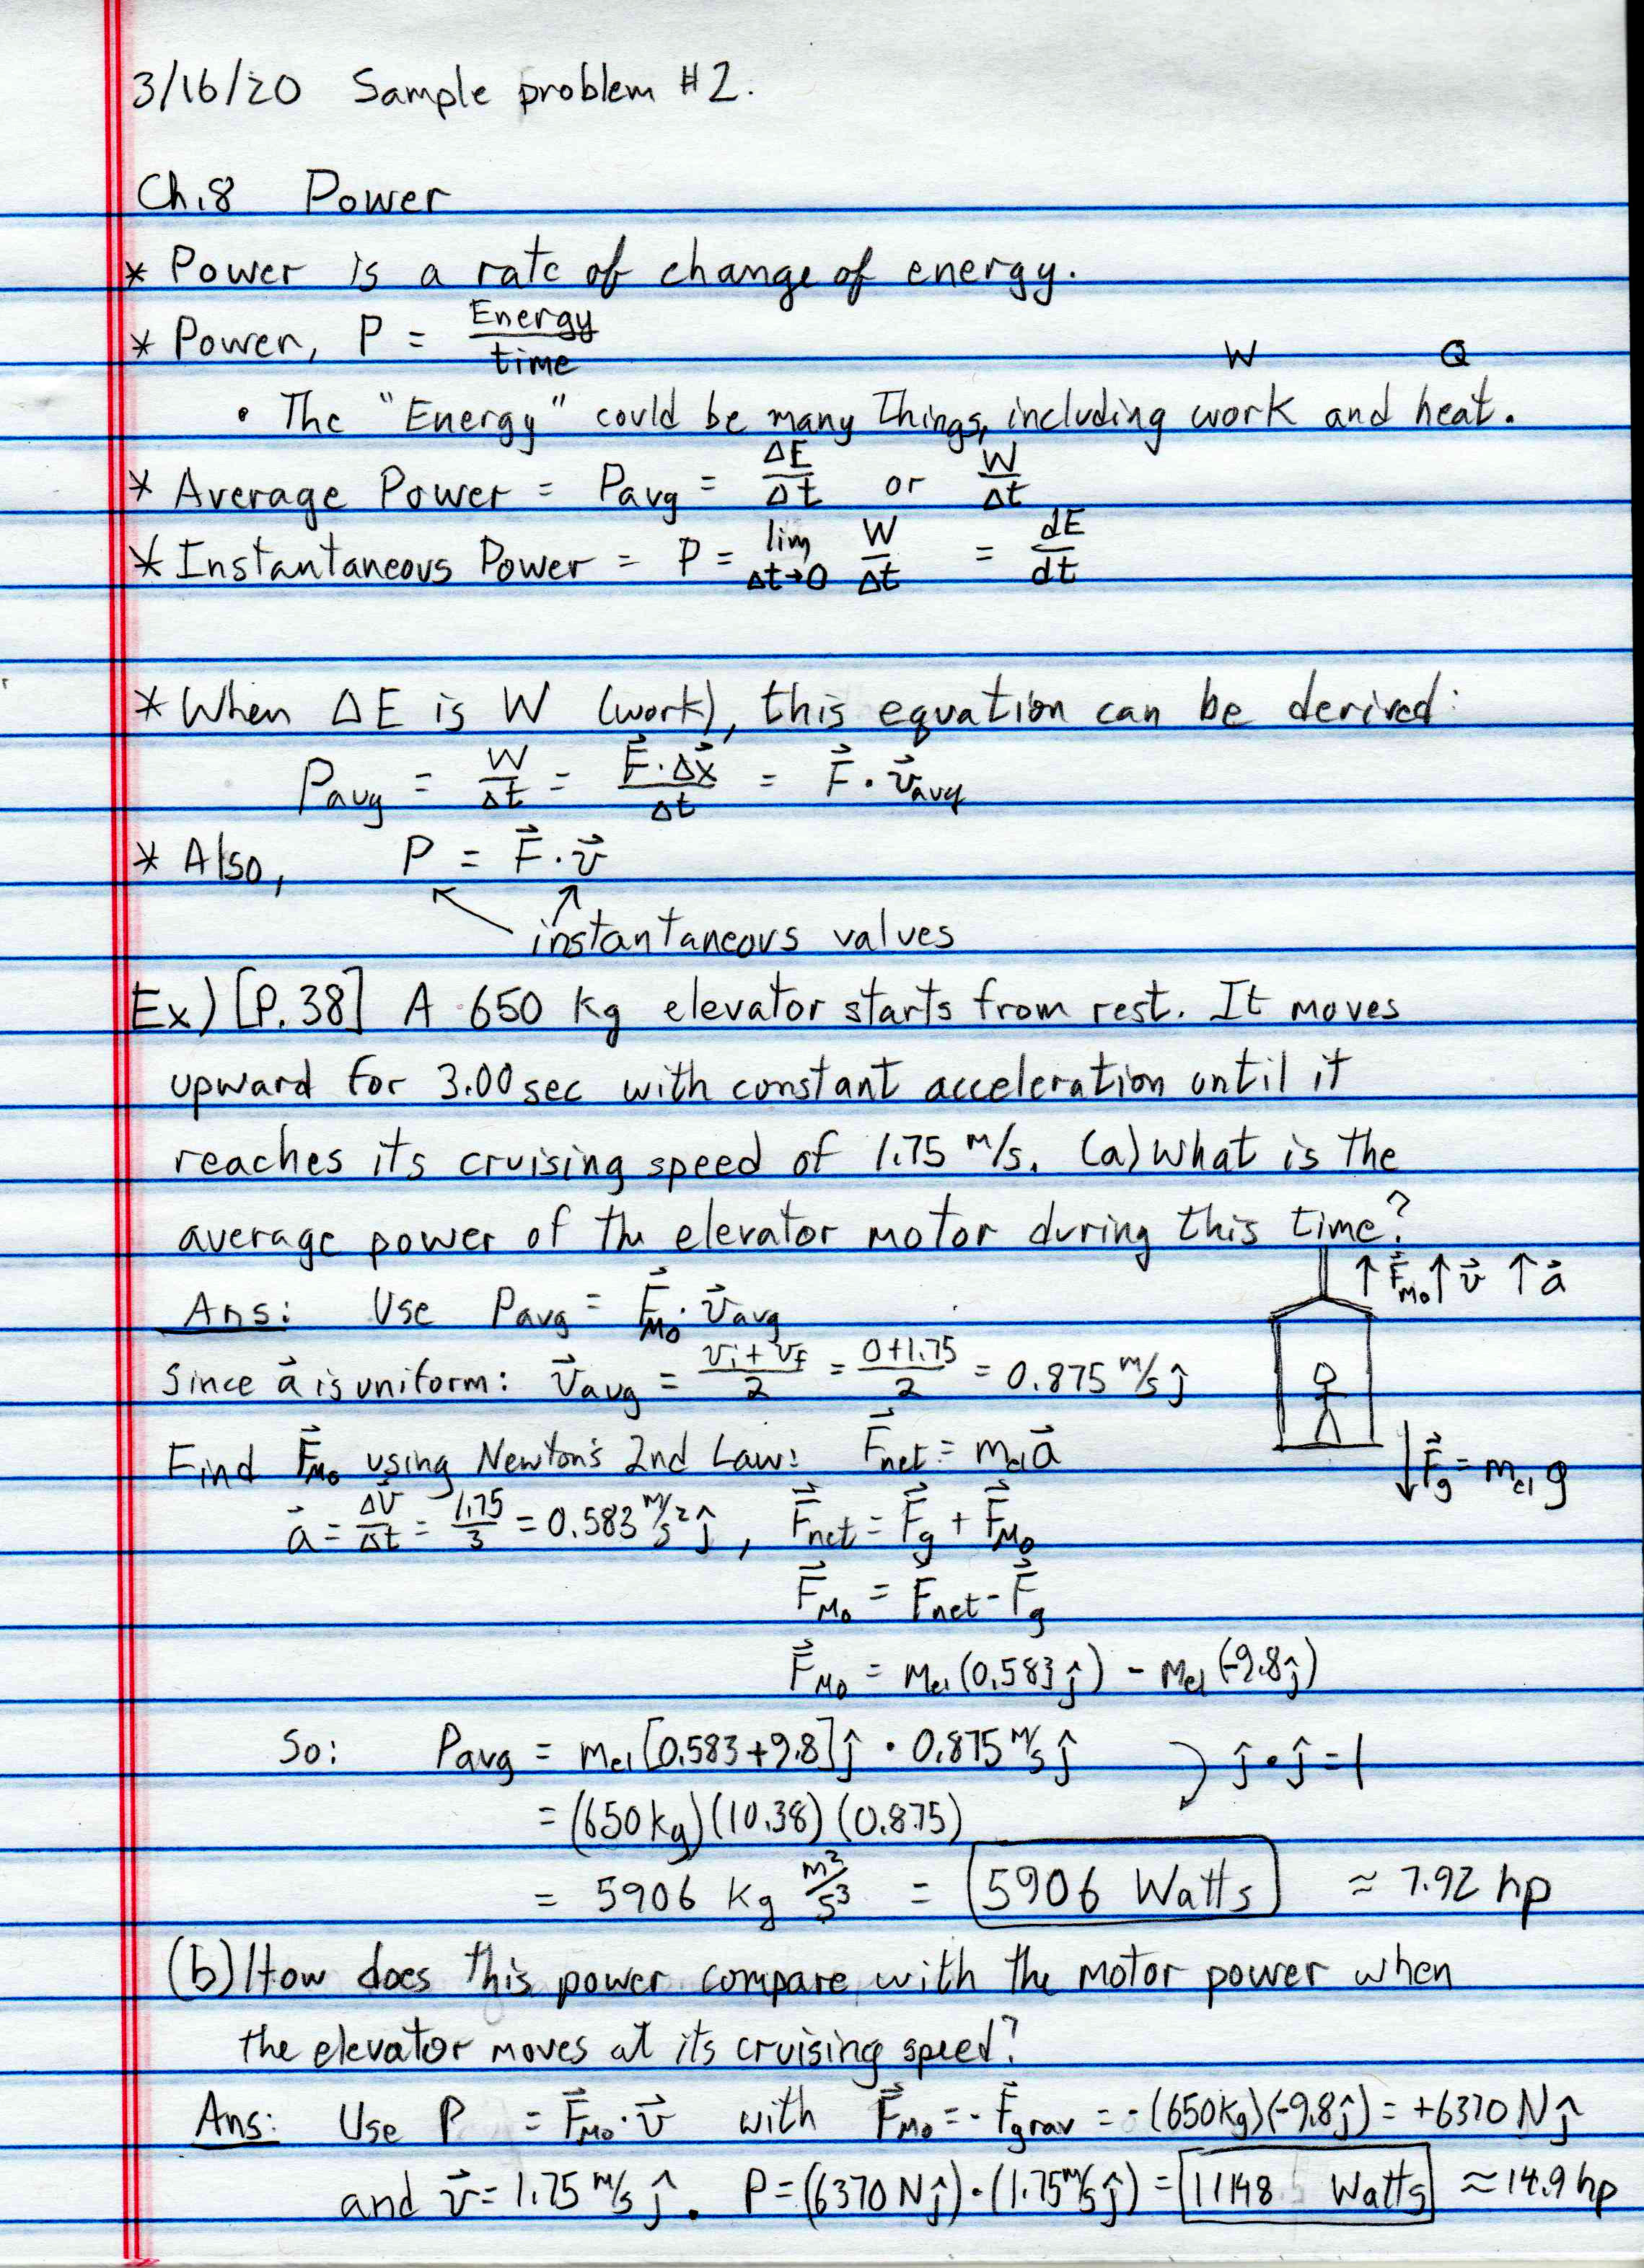 3/16/20 Sample problem #2.
Ch.8 Power
* Power is a rate of change of energy.
* Power, P = Energy/time
W Q
• The "Energy" could be many Things, including work and heat.
* Average Power = Pavg = ΔE/Δt or W/Δt
* Instantaneous Power = P = lim Δt→0 W/Δt = dE/dt
* When ΔE is W (work), this equation can be derived:
Pavg = W/Δt = F⃗·Δx⃗/Δt = F⃗·v⃗avg
* Also, P = F⃗·v⃗
instantaneous values
Ex) [P.38] A 650 kg elevator starts from rest. It moves
upward for 3.00 sec with constant acceleration until it
reaches its cruising speed of 1.75 m/s. (a) What is the
average power of the elevator motor during this time?
↑F⃗Mo ↑v⃗ ↑a⃗
Ans: Use Pavg = F⃗Mo·v⃗avg
Since a⃗ is uniform: v⃗avg = vi+vf/2 = 0+1.75/2 = 0.875 m/s ĵ
Find F⃗Mo using Newton's 2nd Law: F⃗net = mela⃗
↓F⃗g = mel g
a⃗ = Δv⃗/Δt = 1.75/3 = 0.583 m/s² ĵ, F⃗net = F⃗g + F⃗Mo
F⃗Mo = F⃗net - F⃗g
F⃗Mo = Mel (0.583ĵ) - Mel (-9.8ĵ)
So: Pavg = Mel [0.583+9.8]ĵ · 0.875 m/s ĵ ĵ·ĵ=1
= (650kg)(10.38)(0.875)
= 5906 kg m²/s³ = 5906 Watts ≈ 7.92 hp
(b) How does this power compare with the motor power when
the elevator moves at its cruising speed?
Ans: Use P = F⃗Mo·v⃗ with F⃗Mo = -F⃗grav = -(650kg)(-9.8ĵ) = +6370 N ĵ
and v⃗ = 1.75 m/s ĵ. P = (6370 N ĵ)·(1.75 m/s ĵ) = 11148 Watts ≈ 14.9 hp